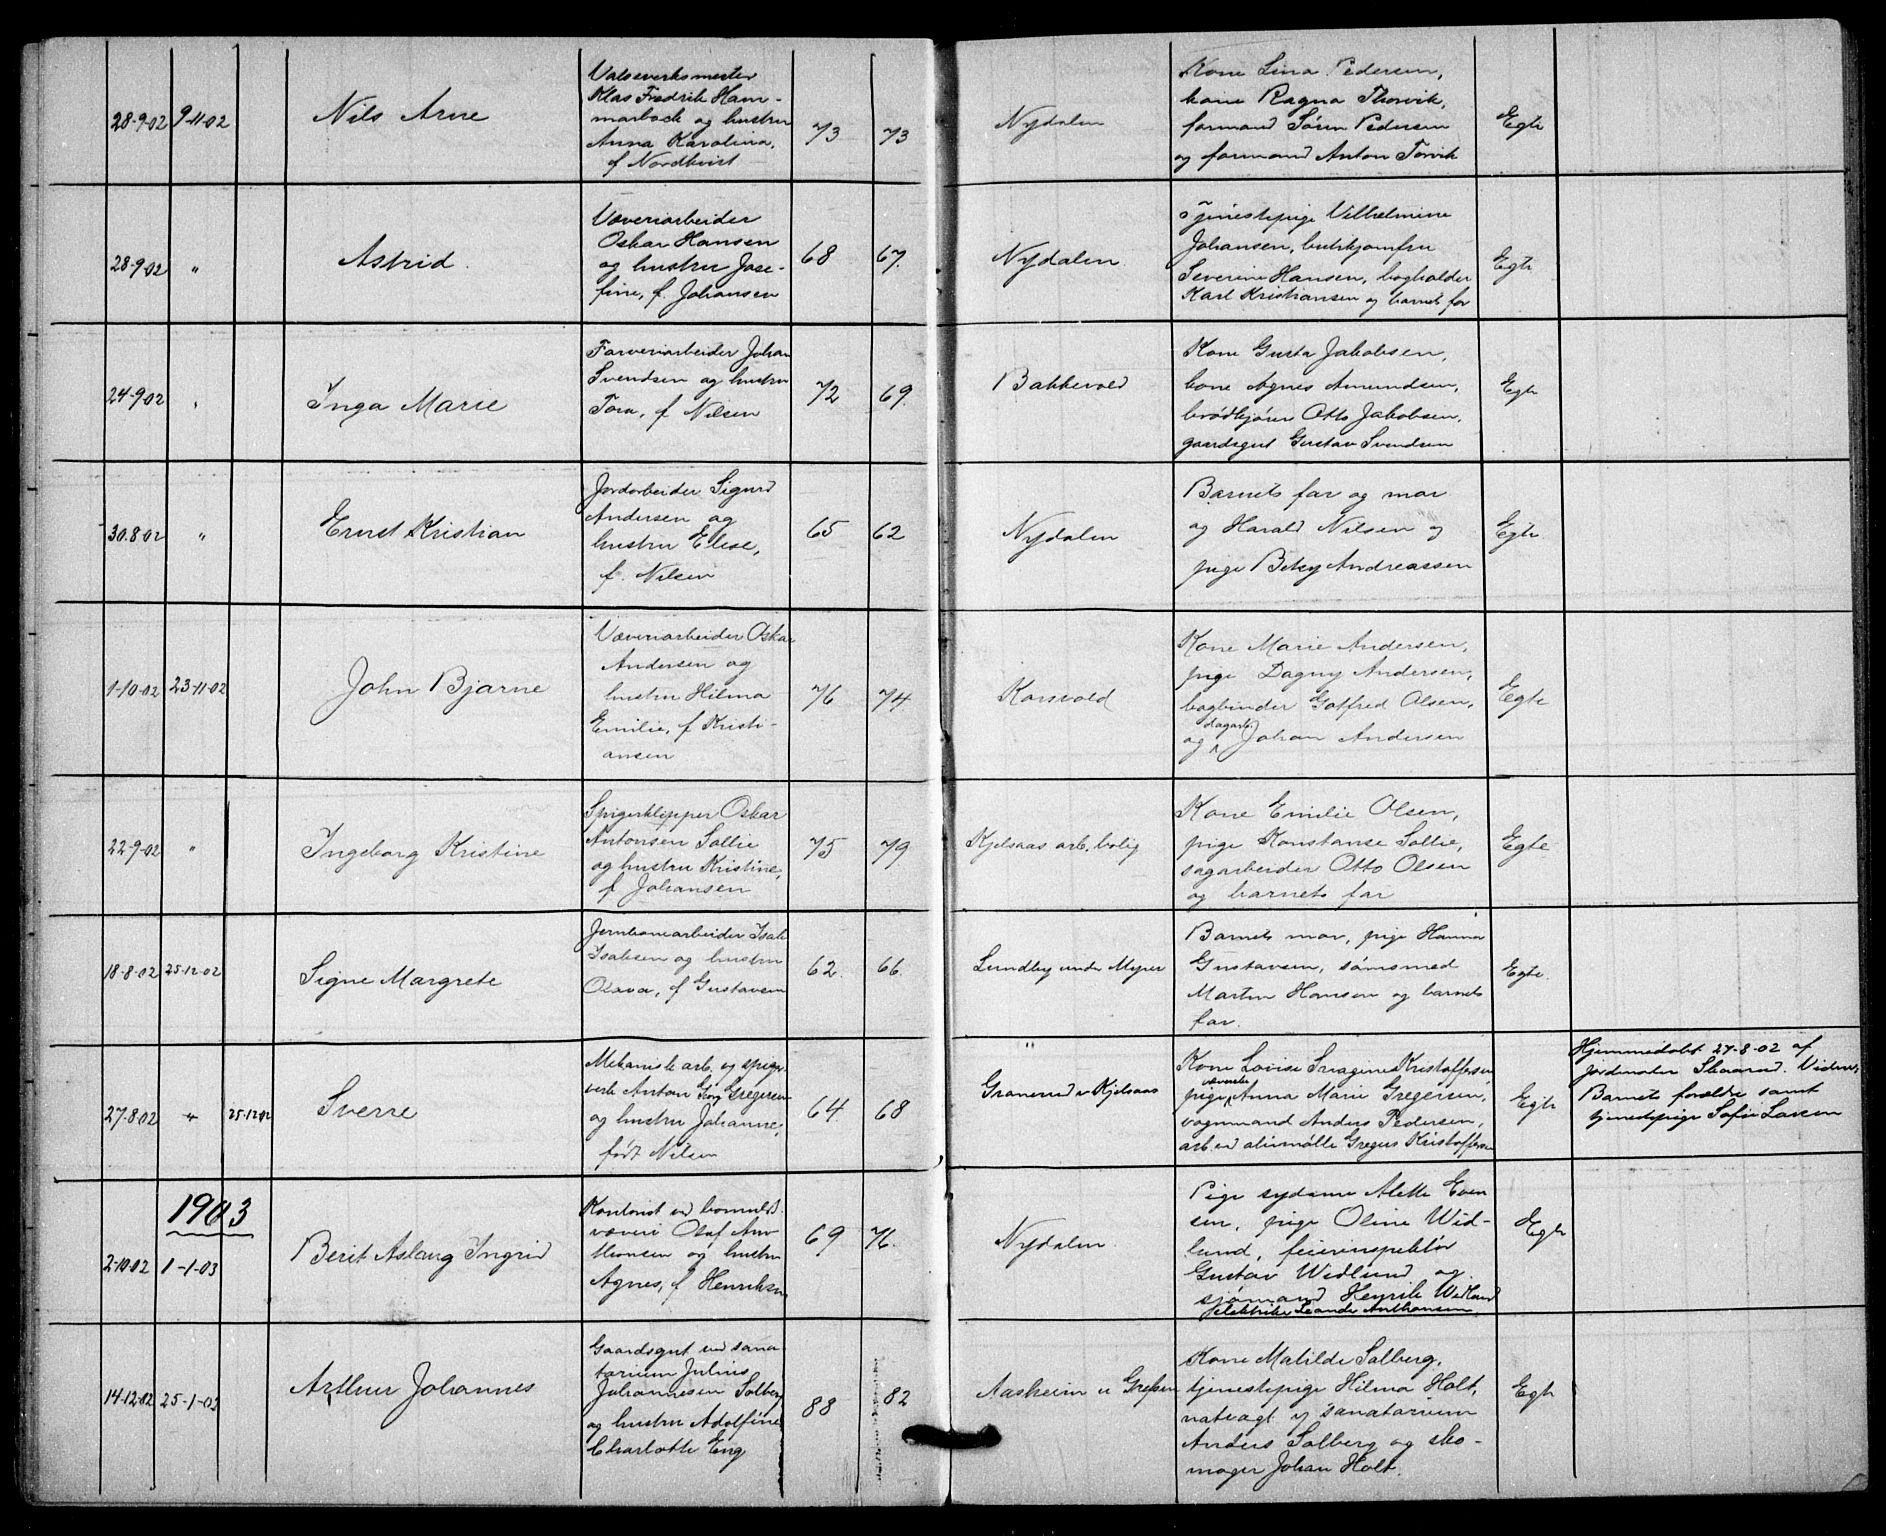 28-9-02 9-11-02 Nils Arne
Valseverksmester
Klas Fredrik Ham-
marback og hustru
Anna Karolina,
f Nordkvist
73 73
Nydalen
Kone Lina Pedersen,
kone Ragna Thorvik,
formand Søren Pedersen
og formand Anton Torvik
Egte
28-9-02 " Astrid.
Væveriarbeider
Oskar Hansen
og hustru Jose-
fine, f. Johansen
68 67.
Nydalen.
Tjenestepige Vilhelmine
Johansen, butikjomfru
Severine Hansen, bogholder
Karl Kristiansen og barnets far
Egte
24-9-02 " Inga Marie
Farveriarbeider Johan
Svendsen og hustru
Tora, f Nilsen
72 69.
Bakkevold
Kone Gusta Jakobsen,
kone Agnes Amundsen,
brødkjører Otto Jakobsen,
gaardsgut Gustav Svendsen
Egte
30.8.02 " Ernst Kristian
Jordarbeider Sigurd
Andersen og
hustru Elise,
f. Nilsen
65 62
Nydalen
Barnets far og mor
og Harald Nilsen og
pige Betsy Andreassen
Egte
1-10-02 23-11-02 John Bjarne
Væveriarbeider Oskar
Andersen og
hustru Hilma
Emilie, f Kristi-
ansen
76 74
Korsvold
Kone Marie Andersen,
pige Dagny Andersen,
bogbinder Gotfred Olsen,
og dagarb. Johan Andersen
Egte
22-9-02 " Ingeborg Kristine
Spigerklipper Oskar
Antonsen Sollie
og hustru Kristine,
f Johansen
75 79
Kjelsaas arb. bolig
Kone Emilie Olsen,
pige Konstanse Sollie,
sagarbeider Otto Olsen
og barnets far
Egte
18-8-02 25-12-02 Signe Margrete
Jernbanearbeider Isak
Isaksen og hustru
Olava, f Gustavsen
62. 66.
Lundby under Myrer
Barnets mor, pige Hanna
Gustavsen, sømsmed
Martin Hansen og barnets
far.
Egte.
27-8-02 " 25-12-02 Sverre
Mekanisk arb. og spiger-
verk Anton Georg Gregersen
og hustru Johanne,
født Nilsen
64. 68
"
Granerud v Kjelsaas
Kone Lovise Kristoffersen,
pige væverske Anna Marie Gregersen,
vognmand Anders Pedersen,
arb. ved Gregus Kristoffersen
Egte
Hjemmedøbt 27-8-02 af
jordmoder Skaarud. Vidner,
Barnets forældre samt
tjenestepige Sofie Larsen
1903
2-10-02 1-1-03 Berit Aslaug Ingrid
Kontorist ved bomulds-
væveri Olaf An-
thonsen og hustru
Agnes, f Henriksen
69 76.
Nydalen
Pige sydame Alette Even-
sen, pige Oline Wid-
lund, feierinspektør
Gustav Widlund og
sjømand Henrik Widlund
elektriker Leander Anthonsen
Egte
14-12-02 25-1-03 Arthur Johannes
Gaardsgut ved sana-
torium Julius
Johannesen Solberg
og hustru Adolfine
Charlotte Eng
88 82
Aasheim v Grefsen
Kone Matilde Solberg,
tjenestepige Hilma Holt,
natvagt v sanatorium
Anders Solberg og sko-
mager Johan Holt.
Egte